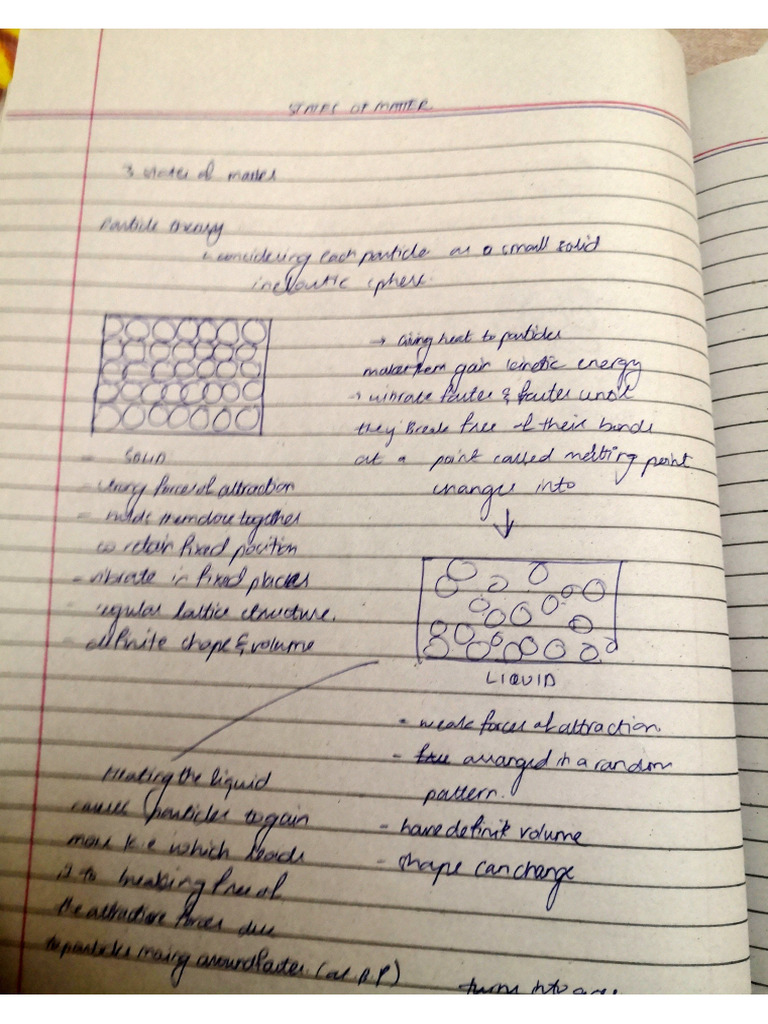 STATES OF MATTER
3 states of matter
Particle theory
considering each particle as a small solid
inelastic sphere.
→ Giving heat to particles
makes them gain kinetic energy
→ vibrate faster & faster until
they break free of their bonds
at a point called melting point
changes into
- SOLID
- strong forces of attraction
- holds them close together
to retain fixed position
- vibrate in fixed places
- regular lattice structure.
- definite shape & volume
LIQUID
- weak forces of attraction.
- arranged in a random
pattern.
- have definite volume
- shape can change
Heating the liquid
causes particles to gain
more k.e which leads
it to breaking free of
the attractive forces due
to particles moving around faster. (at B.P)
turns into gas